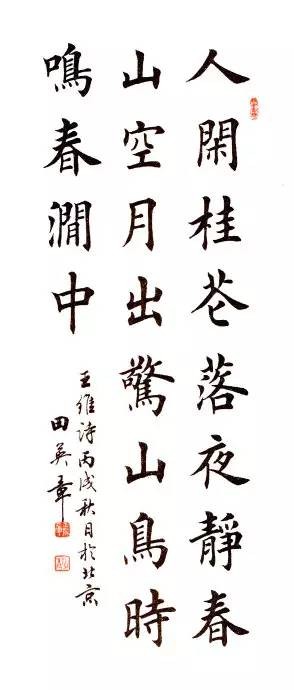 人閑桂花落夜靜春
山空月出驚山鳥時
鳴春澗中
王維詩丙戌秋日於北京
田英章